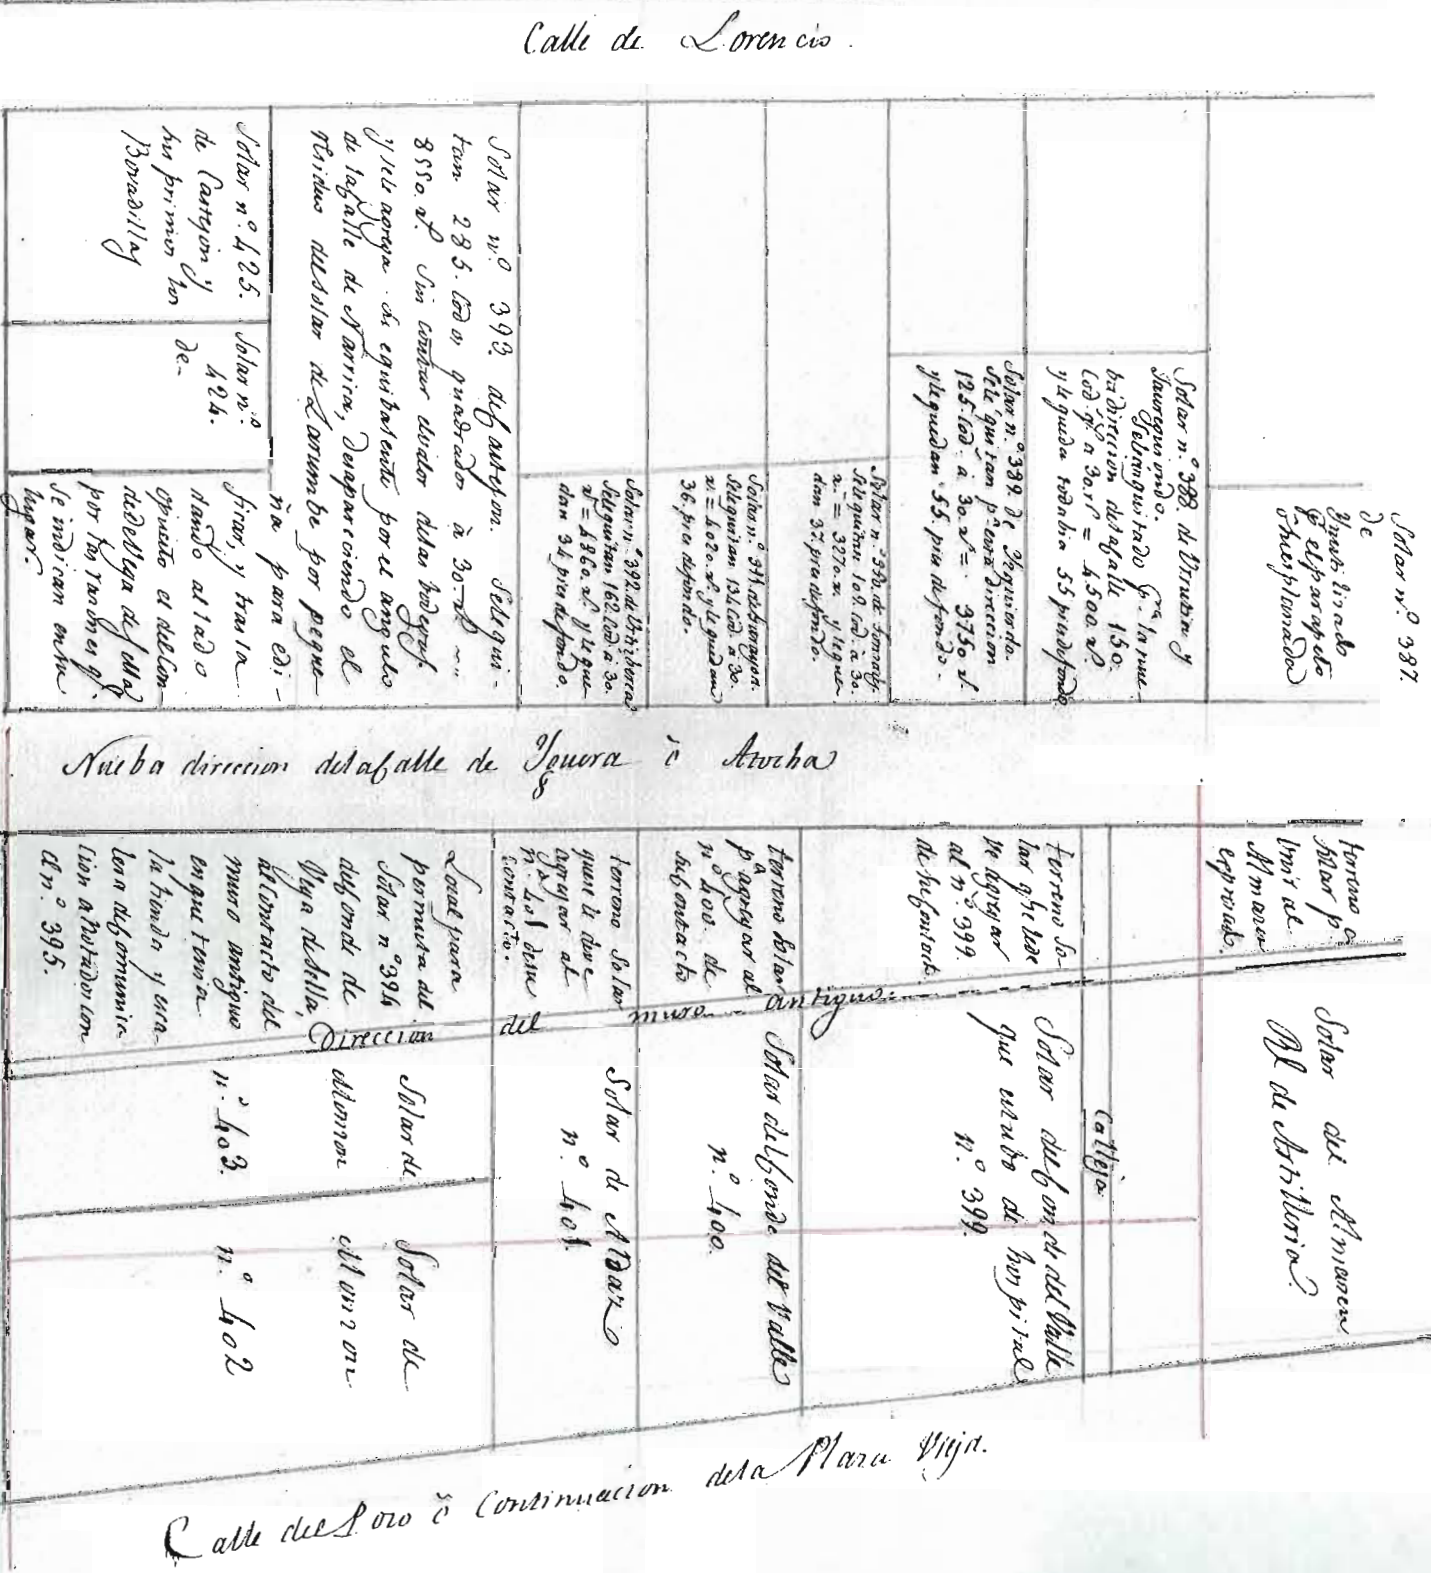 Calle de Lorencio.
Solar nº. 387.
de
Ynutilizado
el parapeto
ó hesplanada
Solar nº 388. de Urrutia y
Jauregui ondo.
Selean quitado pª. la nue-
ba direccion dela Calle 150.
Cod. qs. a 30. rs = 4500. rs.
y le queda todabia 55 pies de fondo
Solar nº. 389. de
Se le quitan pª. esta direccion
125. Cod. à 30. rs = 3750 rs.
y le quedan 55. pies de fondo.
Solar nº. 390. de
Se le quitan 109. Cod. à 30.
rs. = 3270. rs. y le que-
dan 37. pies de fondo.
Solar nº. 391. de
Se le quitan 134 Cod. à 30.
rs. = 4020. rs. y le quedan
36. pies de fondo.
Solar nº. 392. de
Se le quitan 162. Cod à 30.
rs = 4860. rs. y le que-
dan 34 pies de fondo.
Solar nº 393. de Castejon. Se le qui-
tan 285. Codos quadrados à 30. rs
8550. rs. Sin contar el valor delas bodegas.
y se le agrega el equibalente por el angulo
de la Calle de Narrica, desapareciendo el
residuo del solar de Larumbe por peque-
ña para edi-
ficar, y trasla
dando al lado
opuesto el del Con
de de Vega de Sella
por las razones q.
se indican en su
lugar.
Solar nº. 425.
de Castejon y
sus primos los
Bovadilla
Solar nº.
424.
de-
Nueba direccion dela Calle de Yguera ó Atocha
terreno
Solar pª
unir al
Almacen
expresado.
terreno So-
lar q he se de
be agregar
al nº 399.
de su Contacto.
terreno Solar
pª agregar al
nº 400. de
su Contacto
terreno Solar
que se deve
agregar al
nº. 401 de su
contacto.
Local para
permuta del
Solar nº 394
del Conde de
Vega de Sella,
al contacto del
muro antiguo
en que tenia
la tienda y esca-
lera de Comunica-
cion a hotador con
el nº. 395.
Direccion del muro antiguo.
Solar del Almacen
Rl de Artilleria.
Calleja
Solar del Conde del Valle
que estubo de hospital
nº. 399.
Solar del Conde del Valle
nº. 400.
Solar de Aldaz
nº. 401.
Solar de
Monzon
nº. 403.
Solar de
Monzon
nº. 402
Calle del Pozo ó Continuacion dela Plaza Vieja.